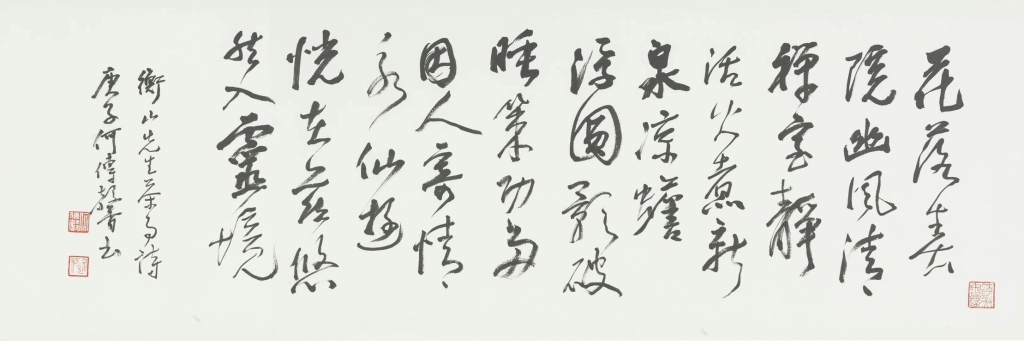 花落春
院幽風清
禪室靜
活火煮新
泉涼蟾
浮圓影破
睡策功多
因人寄情
永仙遊
恍在茲悠
然入靈境
衡山先生茶事詩
庚子何傳馨書